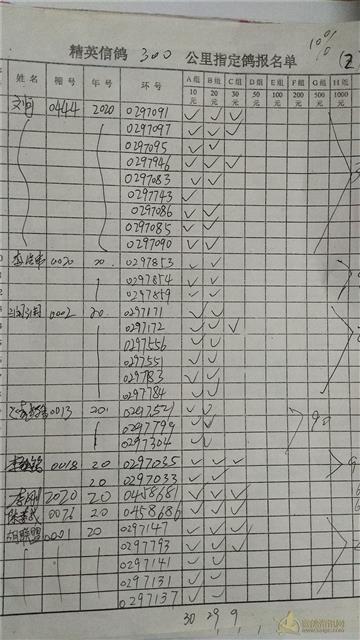 精英信鸽 300 公里指定鸽报名单
10%
姓名 棚号 年号 环号 A组 10元 B组 20元 C组 30元 D组 50元 E组 100元 F组 200元 G组 500元 H组 1000元
0444 2020 0297091 ✓ ✓ ✓
0297097 ✓ ✓ ✓
0297095 ✓ ✓
0297946 ✓ ✓ ✓
0297083 ✓ ✓
0297743 ✓
0297086 ✓ ✓
0297085 ✓ ✓
0297090 ✓ ✓
0020 20 0297853 ✓ ✓
0297854 ✓ ✓
0297859 ✓ ✓
0002 20 0297171 ✓ ✓
0297172 ✓ ✓ ✓
0297556 ✓ ✓
0297551 ✓ ✓
029783 ✓ ✓
0297784 ✓ ✓
0013 20 0297521 ✓ ✓
0297799 ✓ ✓ 90
0297304 ✓ ✓
0018 20 0297035 ✓ ✓ ✓
20 0297033 ✓ ✓
2020 20 0458681 ✓ ✓ ✓
0076 20 0458686 ✓ ✓ ✓
胡联盟 0001 20 0297147 ✓ ✓ ✓
0297793 ✓ ✓ ✓
0297141 ✓ ✓
0297131 ✓ ✓
0297137 ✓ ✓
30 29 9